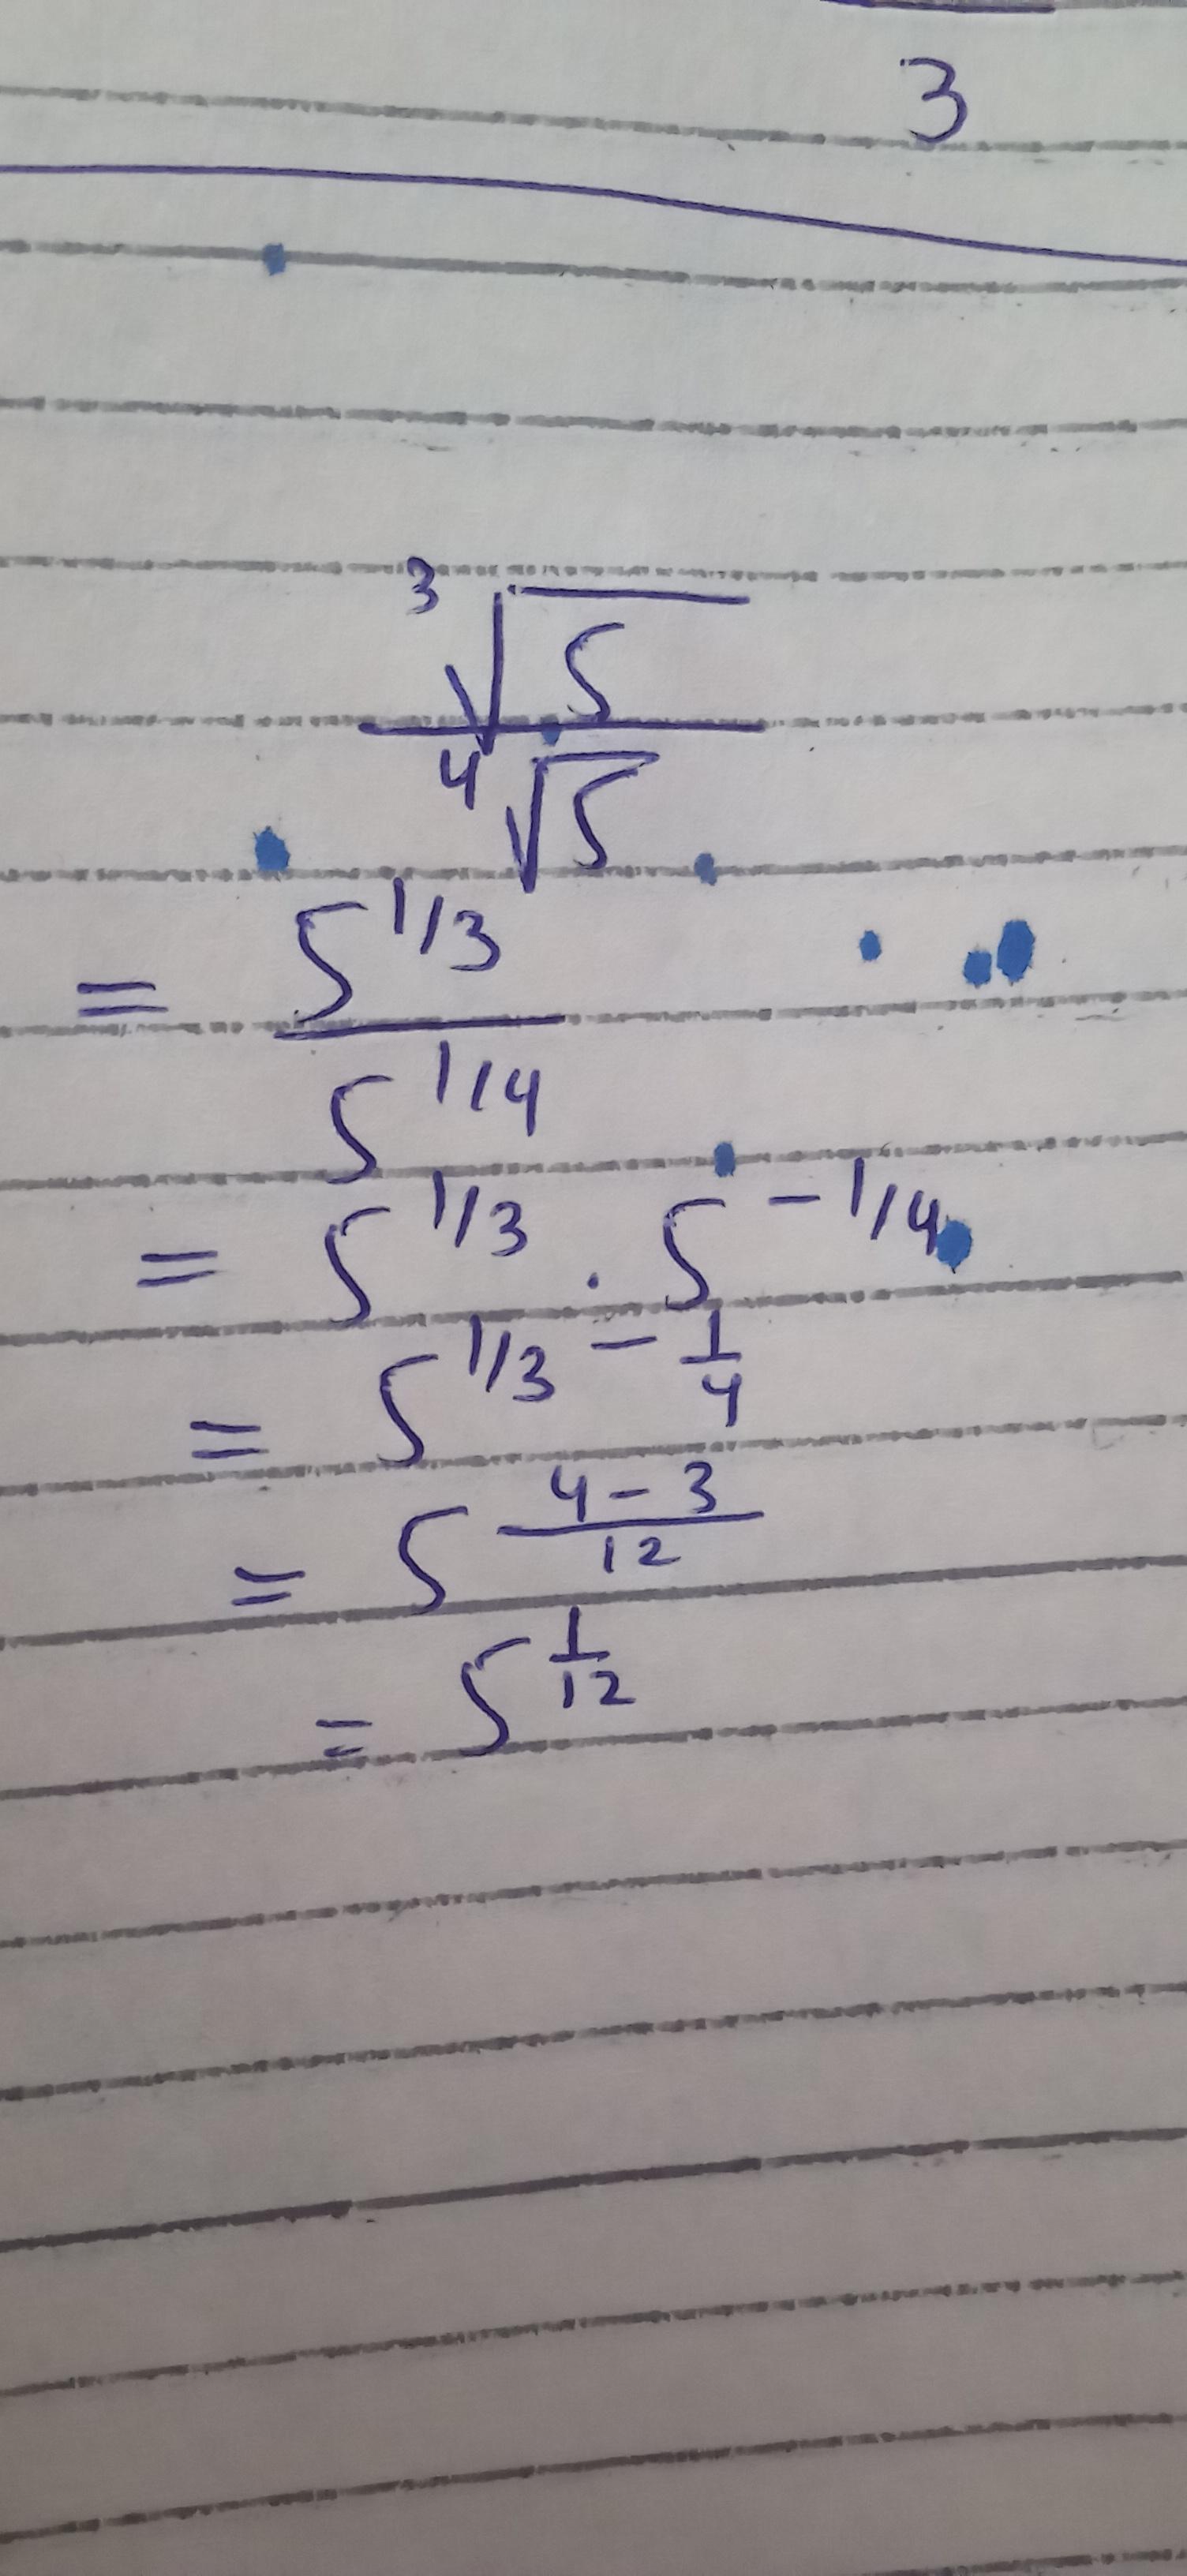 3
∛5 / ∜5
= 5^1/3 / 5^1/4
= 5^1/3 . 5^-1/4
= 5^1/3 - 1/4
= 5^(4-3)/12
= 5^1/12